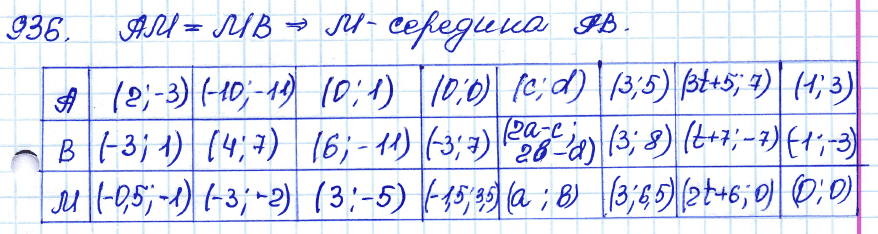 936. AM = MB ⇒ M - середина AB.
A (2;-3) (-10;-11) (0;1) (0;0) (c;d) (3;5) (3t+5;7) (1;3)
B (-3;1) (4;7) (6;-11) (-3;7) (2a-c; 2b-d) (3;8) (t+7;-7) (-1;-3)
M (-0,5;-1) (-3;-2) (3;-5) (-1,5;3,5) (a;b) (3;6,5) (2t+6;0) (0;0)